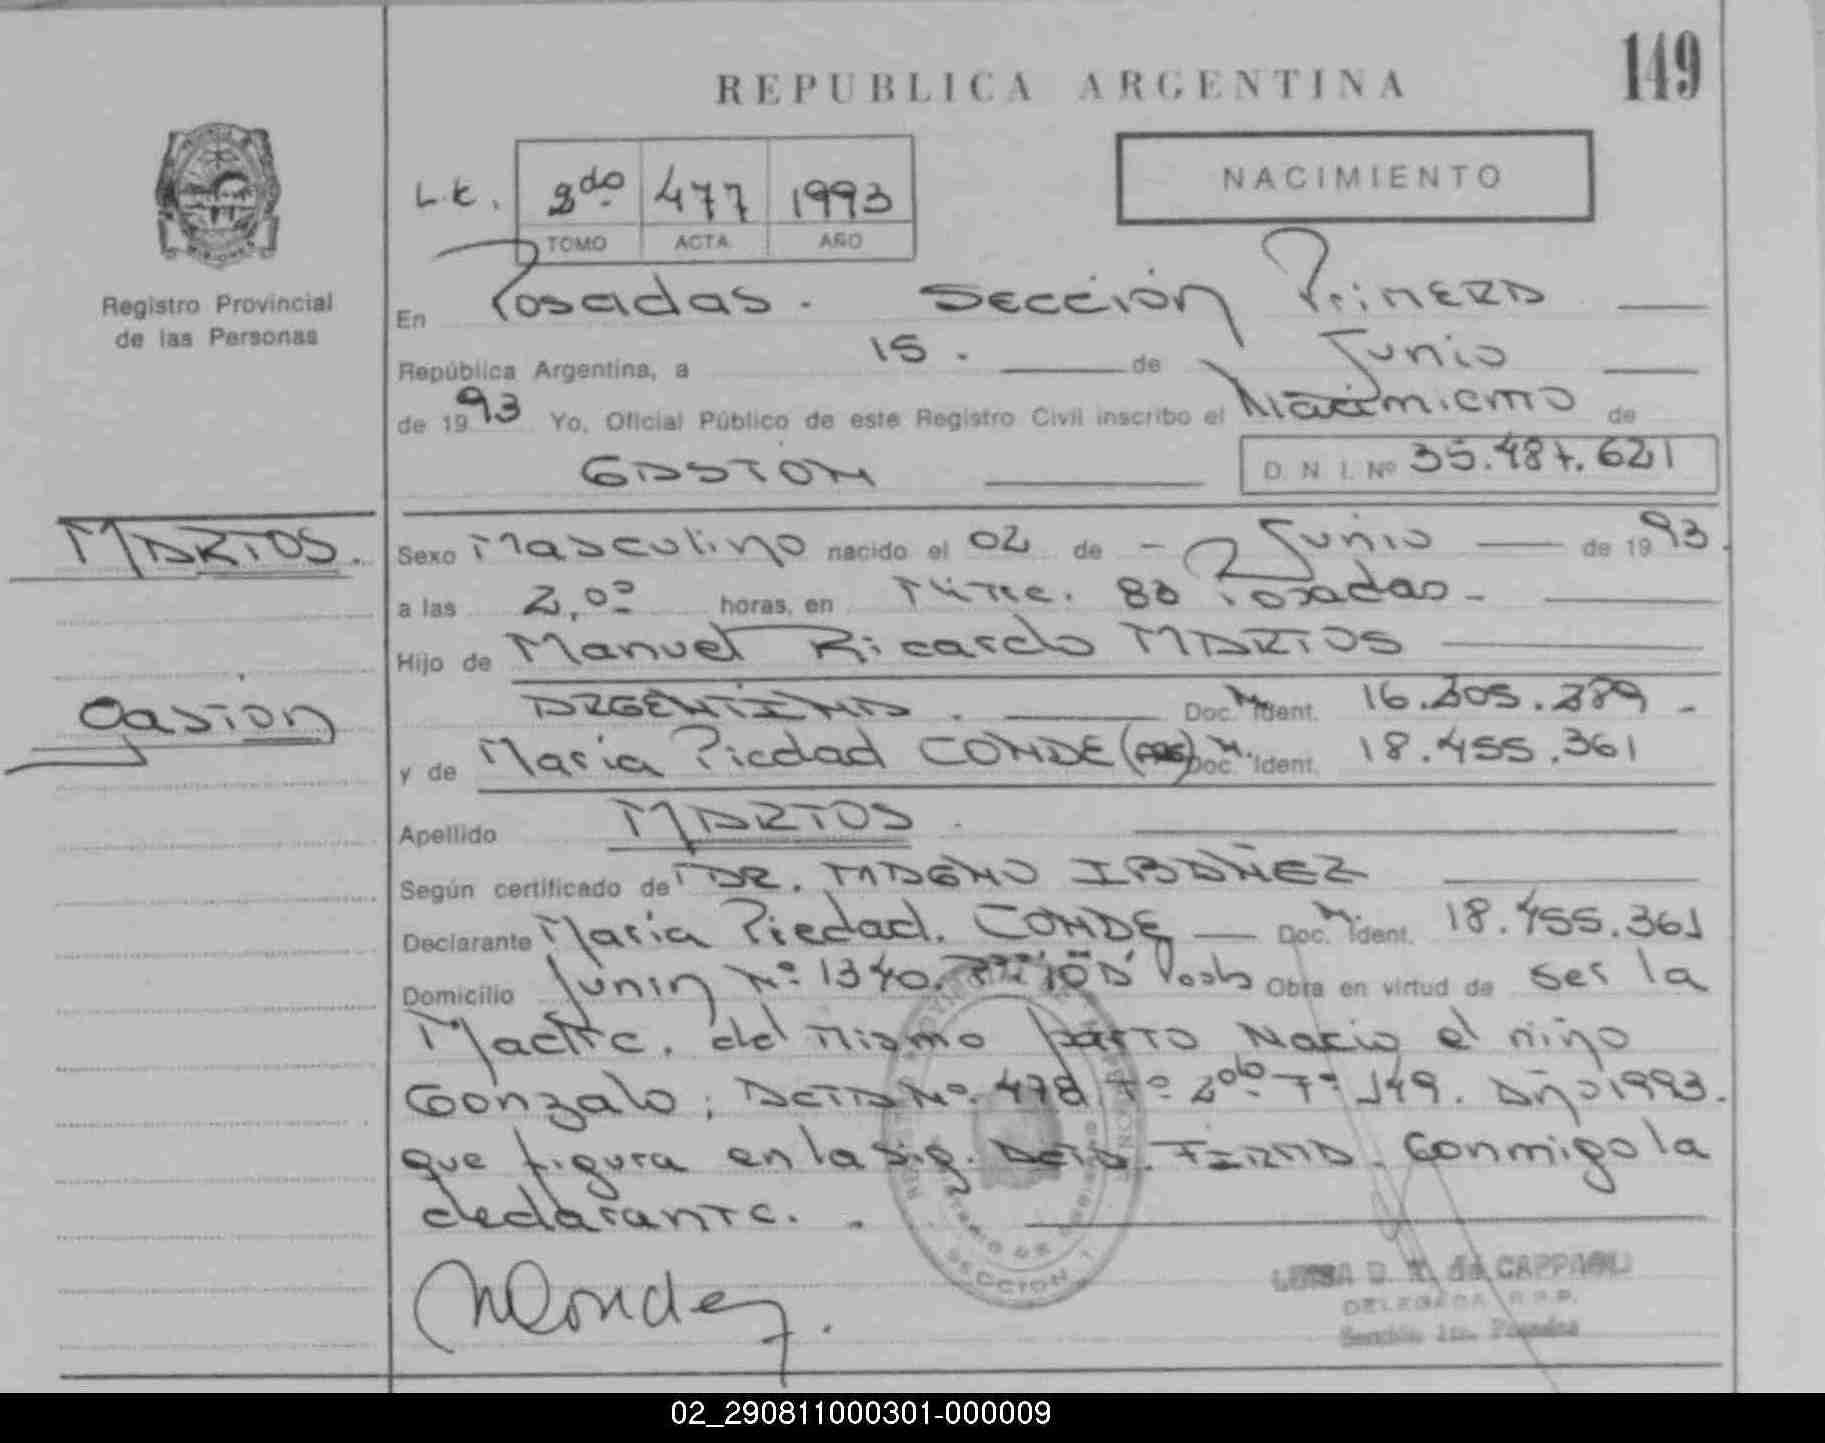 149
REPUBLICA ARGENTINA
NACIMIENTO
L.E. 2do 477 1993
TOMO ACTA AÑO
Registro Provincial
de las Personas
En Posadas. Sección Primera
República Argentina, a 15. de Junio
de 1993 Yo, Oficial Público de este Registro Civil inscribo el Nacimiento de
GASTON D. N. I. Nº 35.487.621
MARTOS.
Gastón
Sexo Masculino nacido el 02 de - Junio de 1993.
a las 2,00 horas, en Posadas-
Hijo de Manuel Ricardo MARTOS
ARGENTINA. Doc. Ident. 16.305.389-
y de María Piedad CONDE Doc. Ident. 18.455.361
Apellido MARTOS
Según certificado de DR. MAGNO IBAÑEZ
Declarante María Piedad. CONDE Doc. Ident. 18.455.361
Domicilio Junín Nº 1340. Obra en virtud de ser la
Madre. del mismo parto Nacio el niño
Gonzalo, ACTA Nº. 478 Tº 2do Fº 149. Año 1993.
que figura en la sig. Acta. FIRMA. Conmigo la
declarante.
SECCION 1
de CAPPAGLI
DELEGADA R.P.P.
Sección 1ra. Posadas
02_290811000301-000009